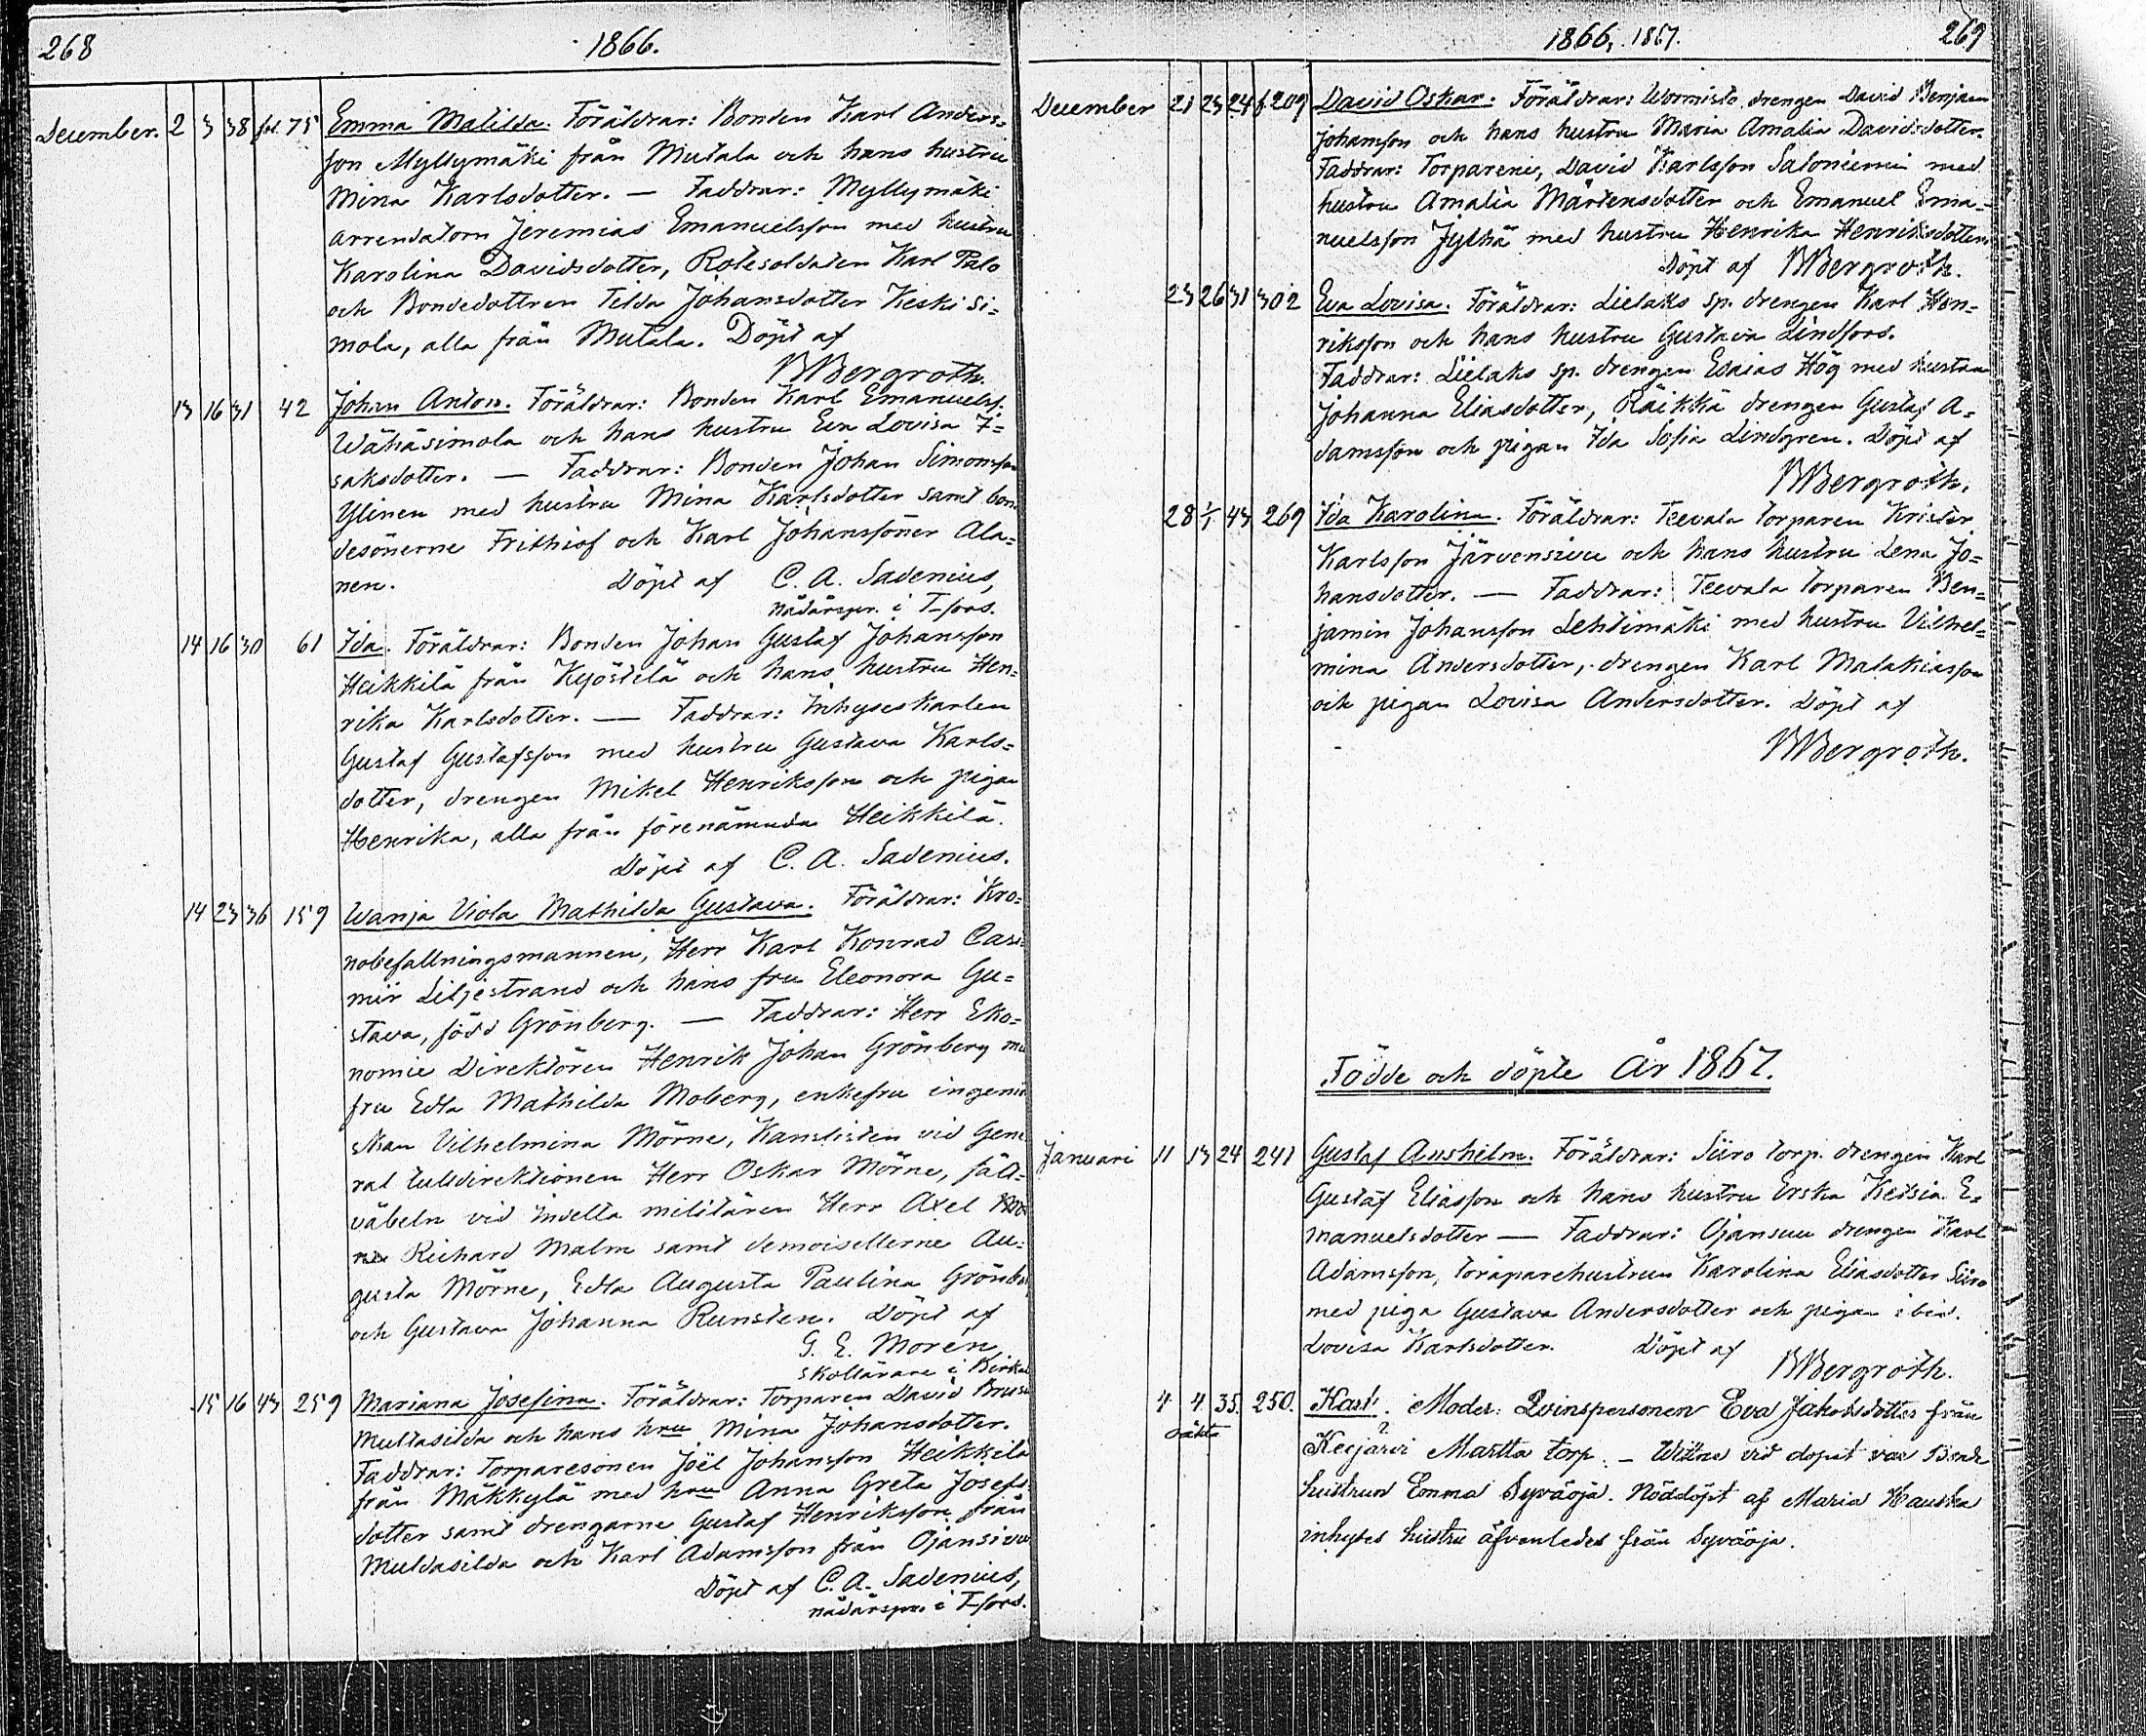 268 1866.
December. 2 3 38 fol. 75 Emma Matilda. Föräldrar: Bonden Karl Anders-
son Myllymäki från Mutala och hans hustru
Mina Karlsdotter. — Faddrar: Myllymäki
arrendatorn Jeremias Emanuelsson med hustru
Karolina Davidsdotter, Rotesoldaten Karl Palo
och Bondedottren Tilda Johansdotter Keski si=
mola, alla från Mutala. Döpt af
BBergroth.
13 16 31 42 Johan Anton. Föräldrar: Bonden Karl Emanuelss.
Wähäsimola och hans hustru Eva Lovisa I=
saksdotter. — Faddrar: Bonden Johan Simonsson
Ylinen med hustru Mina Karlsdotter samt bon
desönerne Frithiof och Karl Johanssöner Ala=
nen. Döpt af C. A. Sadenius,
nådårspr. i T-fors.
14 16 30 61 Ida. Föräldrar: Bonden Johan Gustaf Johansson
Heikkilä från Kyöstilä och hans hustru Hen=
rika Karlsdotter. — Faddrar: Inhyseskarlen
Gustaf Gustafsson med hustru Gustava Karls=
dotter, drengen Mikel Henriksson och pigan
Henrika, alla från förenämnda Heikkilä.
Döpt af C. A. Sadenius.
14 23 36 159 Wanja Viola Mathilda Gustava. Föräldrar: Kro=
nobefallningsmannen, Herr Karl Konrad Casi
mir Liljestrand och hans fru Eleonora Gu=
stava, född Grönberg. — Faddrar: Herr Eko=
nomie Direktören Henrik Johan Grönberg me
fru Edla Mathilda Moberg, enkefru ingeniö
skan Vilhelmina Mörne, Kanslisten vid Gene
ral tulldirektionen Herr Oskar Mörne, fält=
väbeln vid indelta militären Herr Axel
Richard Malm samt demoisellerne Au=
gusta Mörne, Edla Augusta Paulina Grönbe
och Gustava Johanna Runsten. Döpt af
G. E. Morén
Skollärare i Birkal
15 16 43 259 Mariana Josefina. Föräldrar: Torparen David Brusi
Multasilda och hans hru Mina Johansdotter.
Faddrar: Torparesonen Joël Johansson Heikkilä
från Mäkkylä med hru Anna Greta Josefs
dotter samt drengarne Gustaf Henriksson från
Multasilda och Karl Adamsson från Ojansivu
Döpt af C. A. Sadenius,
nådårspr. i T-fors.
1866, 1867. 269
December 21 23 24 f. 209 David Oskar. Föräldrar: Wormisto drengen David Benjam
Johansson och hans hustru Maria Amalia Davidsdotter.
Faddrar: Torparene, David Karlsson Saloniemi med
hustru Amalia Mårtensdotter och Emanuel Ema=
nuelsson Jylhä med hustru Henrika Henriksdotter.
Döpt af BBergroth.
23 26 31 302 Eva Lovisa. Föräldrar: Lielaks sp. drengen Karl Hen=
riksson och hans hustru Gustava Lindfors.
Faddrar: Lielaks sp. drengen Esaias Hög med hustru
Johanna Eliasdotter, Räikkä drengen Gustaf A=
damsson och pigan Ida Sofia Lindgren. Döpt af
BBergroth.
28 1/1 43 269 Ida Karolina. Föräldrar: Teevala torparen Krister
Karlsson Järvensivu och hans hustru Lena Jo=
hansdotter. — Faddrar: Teevala torparen Ben=
jamin Johansson Lehtimäki med hustru Vilhel=
mina Andersdotter, drengen Karl Malakiasson
och pigan Lovisa Andersdotter. Döpt af
BBergroth.
Födde och döpte År 1867.
Januari 11 13 24 241 Gustaf Anshelm. Föräldrar: Siiro torp. drengen Karl
Gustaf Eliasson och hans hustru Erska Ketsia E=
manuelsdotter — Faddrar: Ojansuu drengen Karl
Adamsson, torparehustrun Karolina Eliasdotter Siiro
med piga Gustava Andersdotter och pigan ibid.
Lovisa Karlsdotter. Döpt af
BBergroth.
4 4 35. 250. Karl. Moder: Qvinspersonen Eva Jakobsdotter från
oäkta
Keejärvi Martta torp. — Wittne vid dopet var Bonde
hustrun Emma Syväoja. Nöddöpt af Maria Hauska
inhyses hustru äfvenledes från Syväoja.